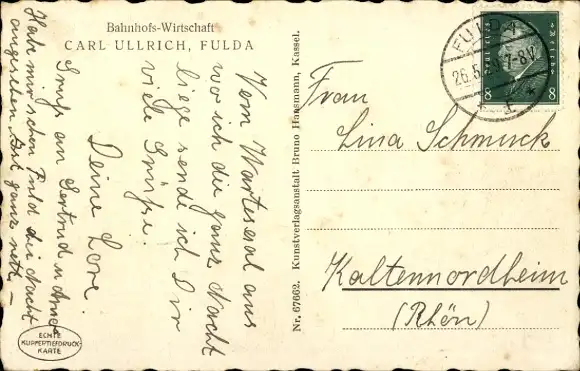 Bahnhofs-Wirtschaft
CARL ULLRICH, FULDA
Vom Wartesaal aus
wo ich die ganze Nacht
liege sende ich Dir
viele Grüße.
Deine Lore.
Gruß an Gertrud u.
Habe mir schon Fulda bei Nacht
angesehen ganz nett –
ECHTE
KUPFERTIEFDRUCK-
KARTE
Nr. 67662. Kunstverlagsanstalt Bruno Hansmann, Kassel.
FULDA
26.5. 7-8V.
8 8
Frau
Lina Schmuck
Kaltennordheim
(Rhön)